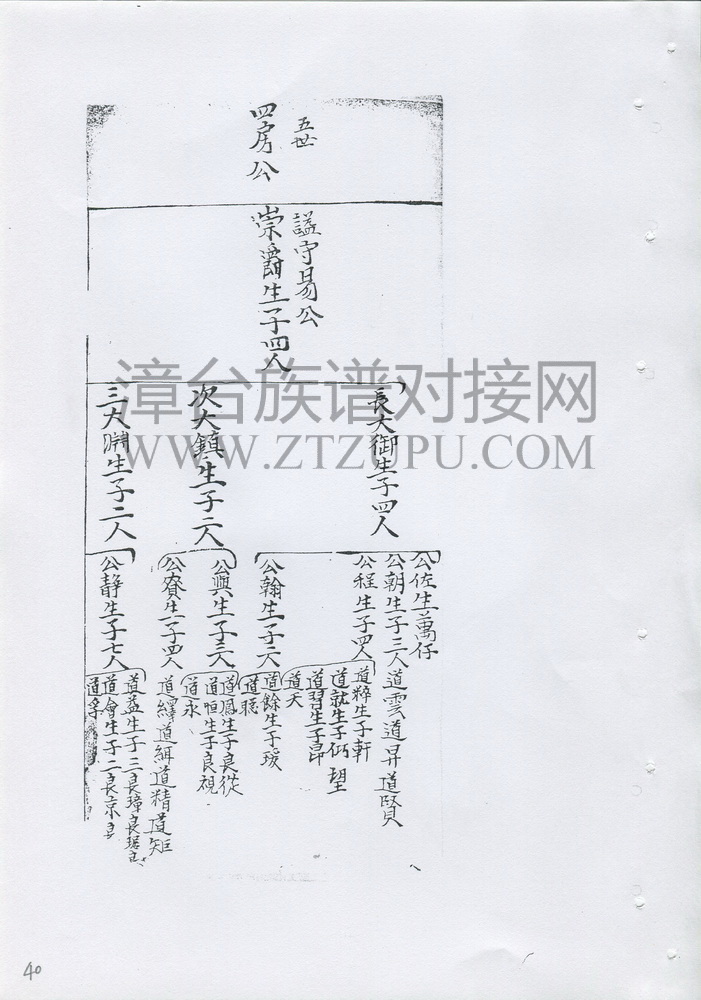 五世
四房公
謚守易公
崇爵生子四人
漳台族谱对接网
WWW.ZTZUPU.COM
長大御生子四人
次大鎮生子二人
三大開生子二人
公佐生萬仔
公朝生子三人道雲道昇道賢
公程生子四人
道粹生子軒
道就生子仍望
道習生子昂
道天
公翰生子二人
道餘生子瑗
道聪
公興生子三人
道鳳生子良從
道恒生子良視
道永
公賚生子四人
道繹道緝道精道矩
公静生子七人
道益生子三長璋良琚良
道會生子二長京良
道孚
40